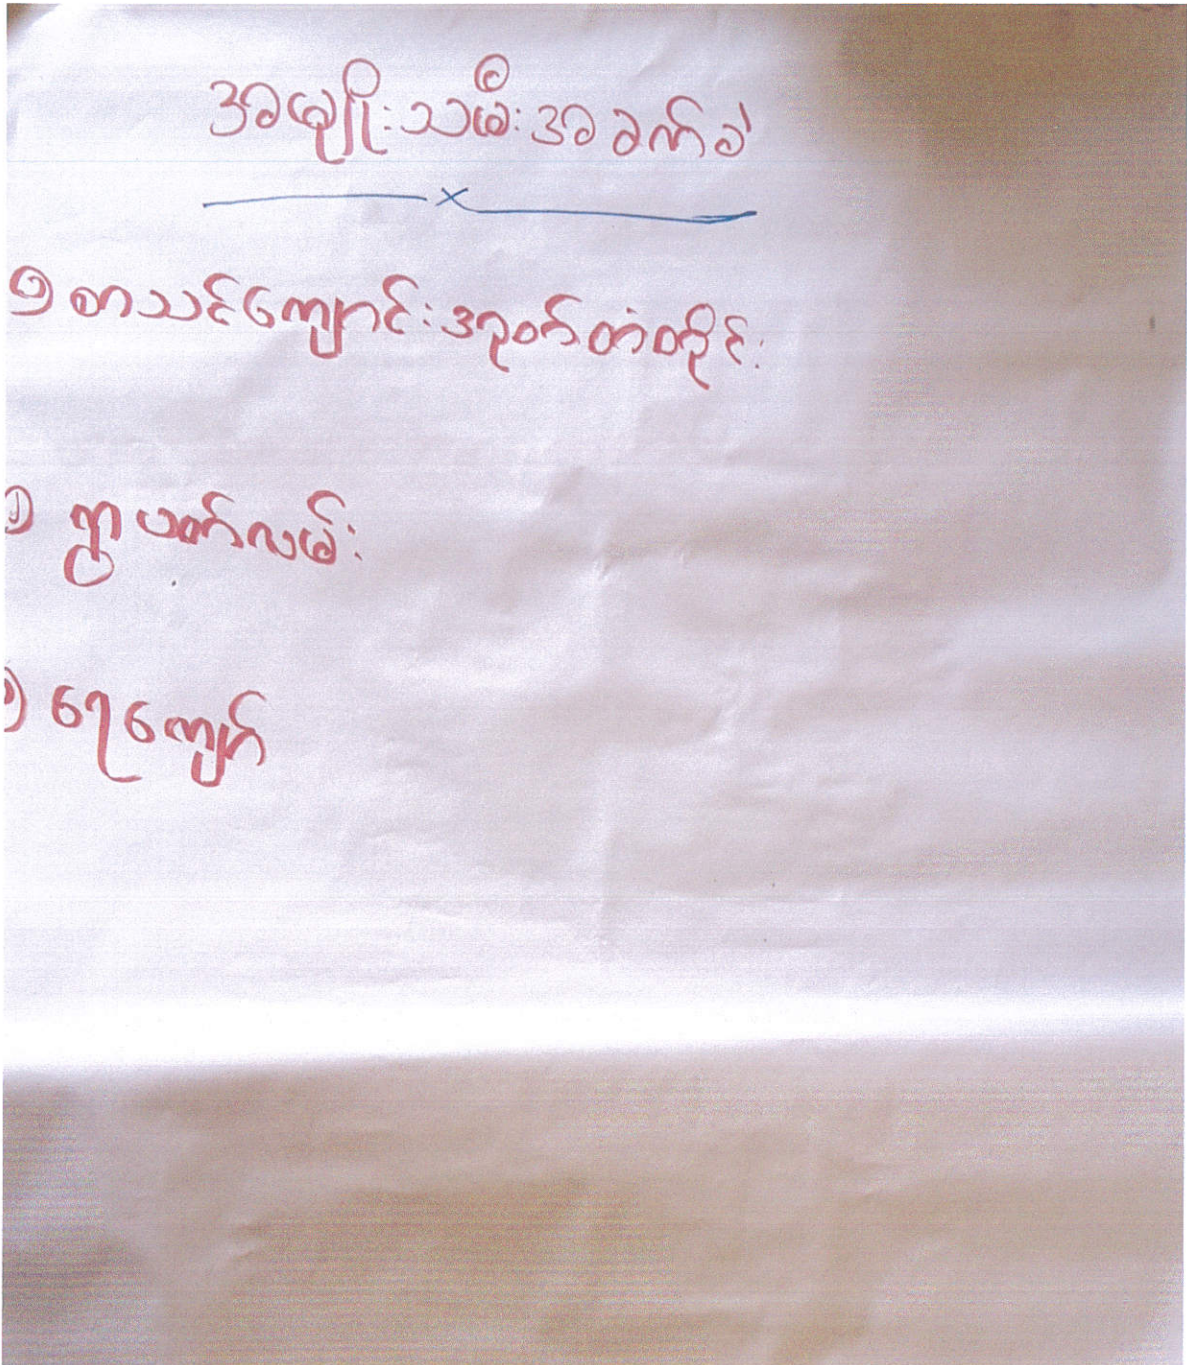 အမျိုးသမီးအခက်ခဲ
၁) စာသင်ကျောင်းအုတ်တံတိုင်း
၂) ရွာပတ်လမ်း
၃) ရေကျော်